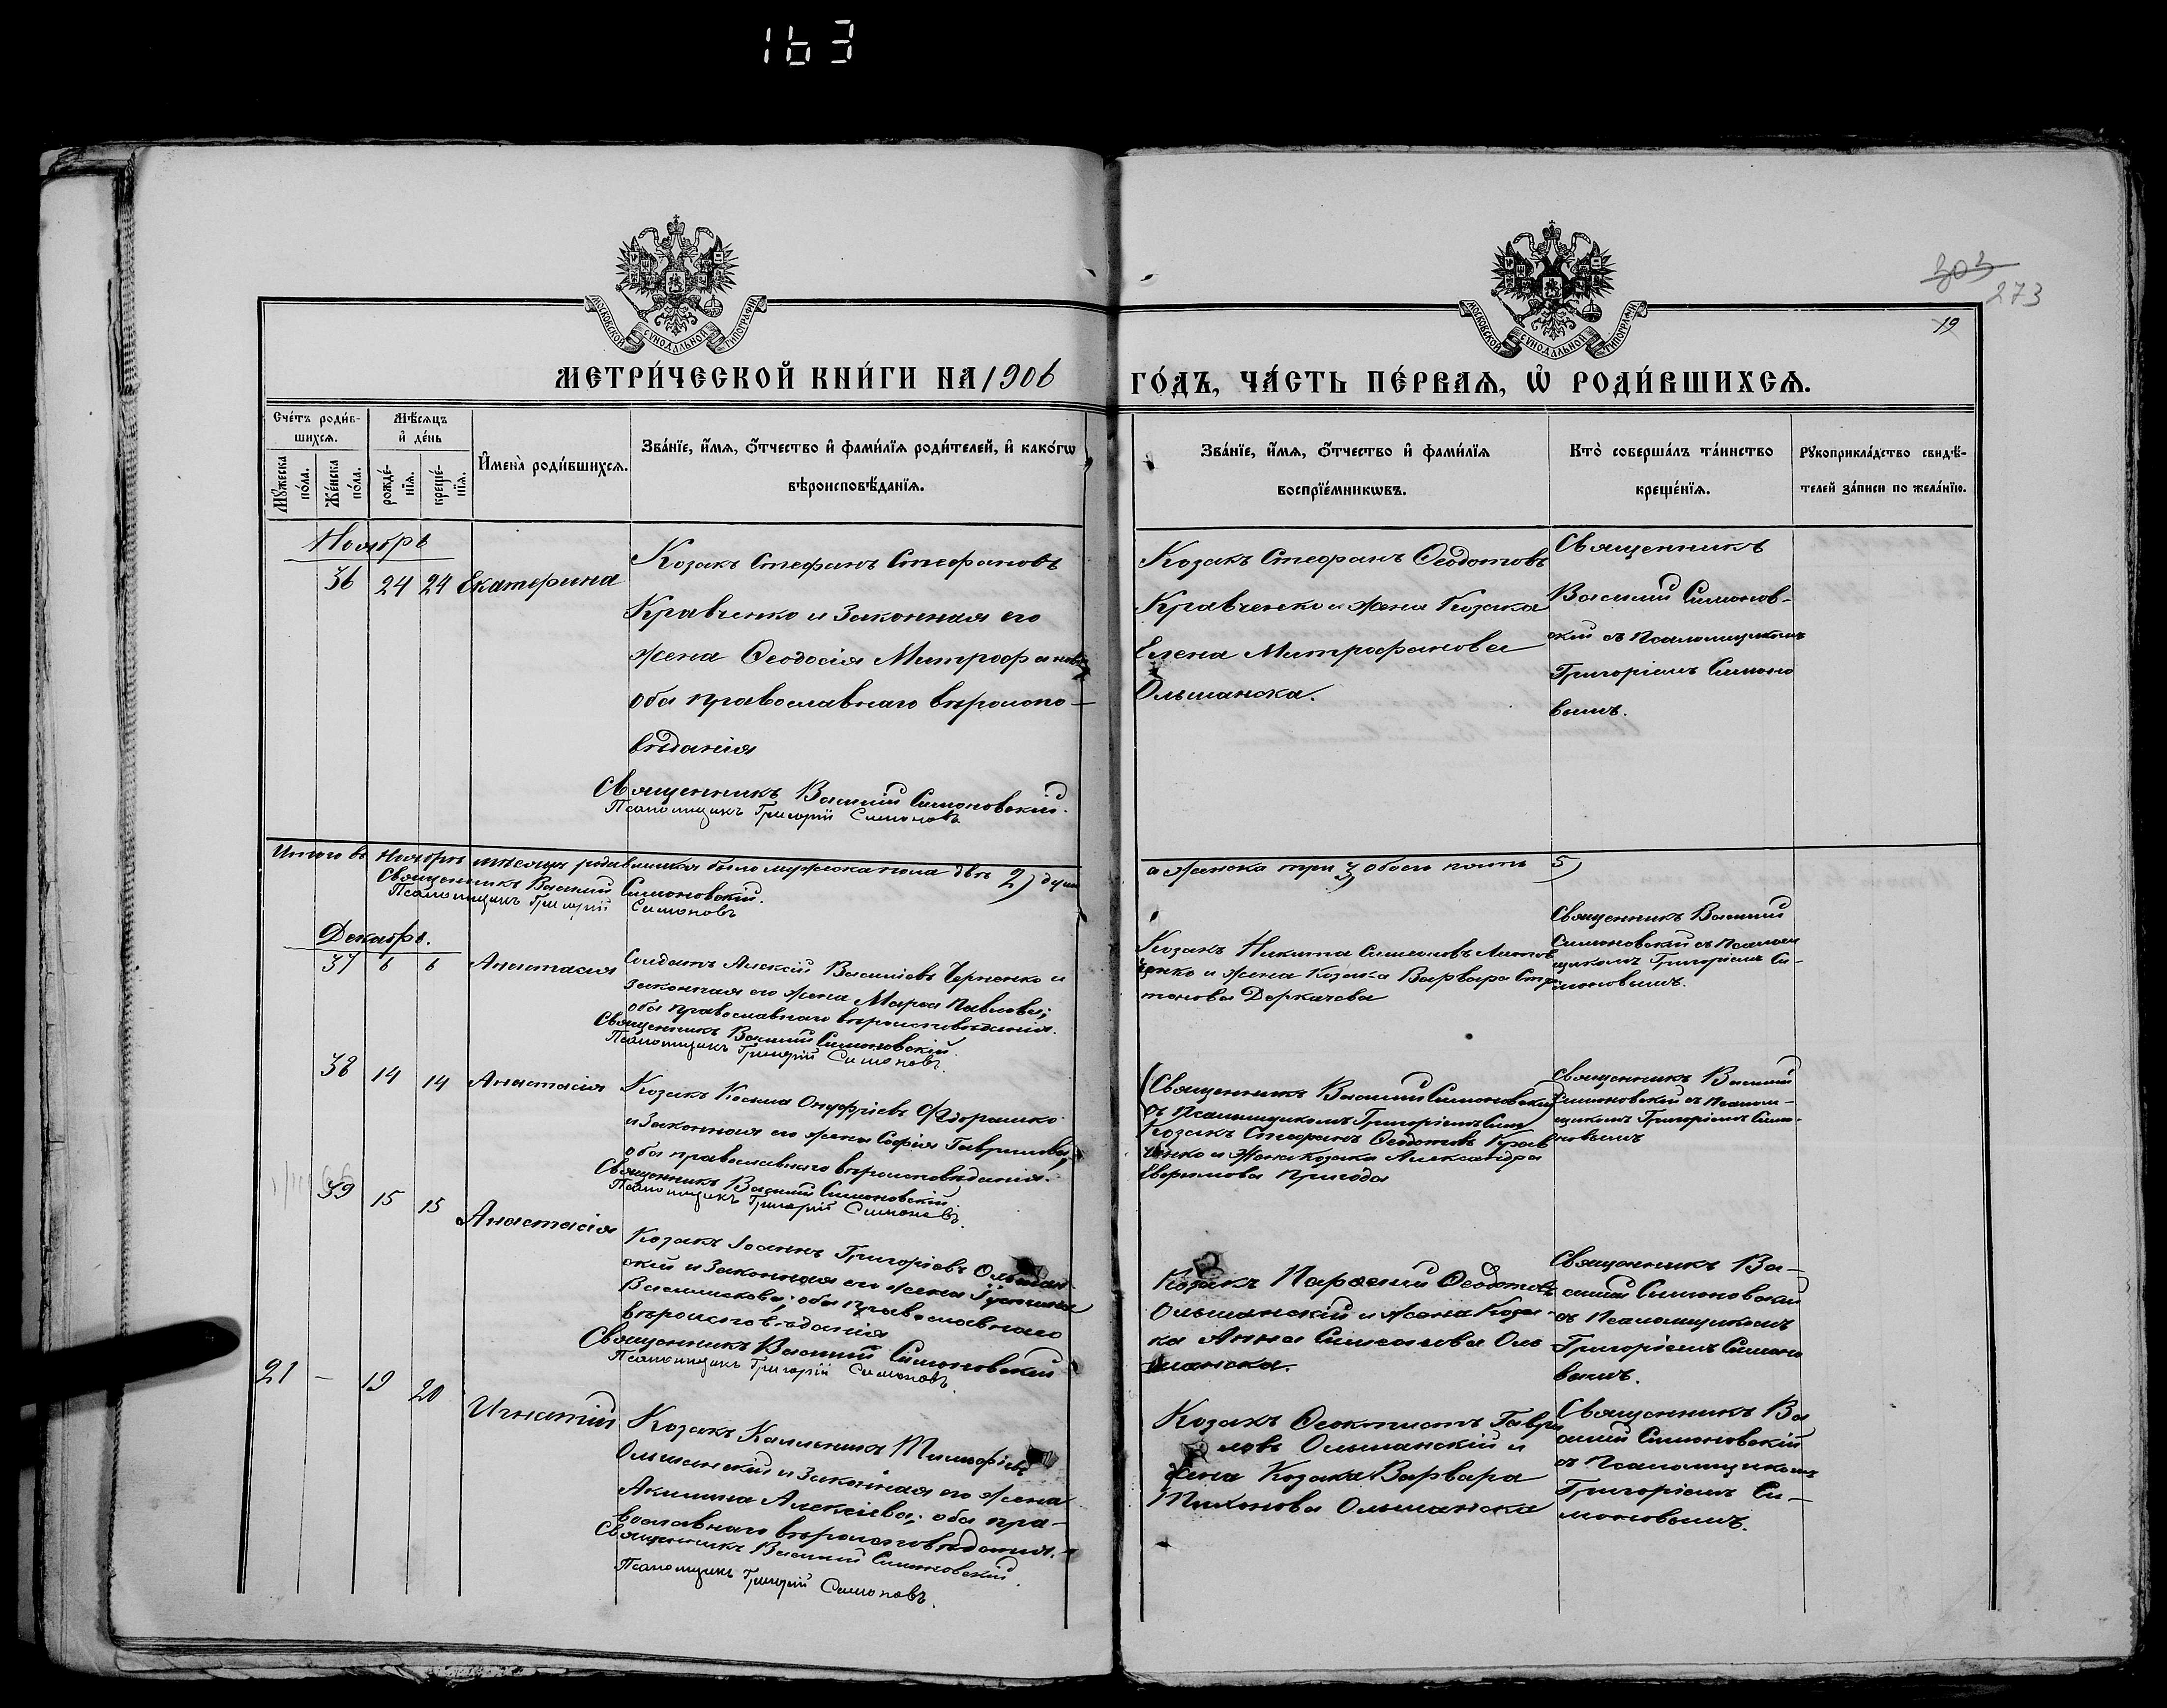 163
МОСКОВСКОЙ СѴНОДАЛЬНОЙ ТИПОГРАФИИ
МОСКОВСКОЙ СѴНОДАЛЬНОЙ ТИПОГРАФИИ
303
273
19
МЕТРИ́ЧЕСКОЙ КНИ́ГИ НА 1906
ГО́ДЪ, ЧА́СТЬ ПЕ́РВАЯ, Ѡ РОДИ́ВШИХСЯ.
Сче́тъ роди́в-
шихся.
Мѣсяцъ
и де́нь
Имена̀ роди́вшихся.
Зва́нїе, и́мя, о́тчество и фами́лїя роди́телей, и како́гѡ
вѣроисповѣ́данїя.
Мꙋжеска
по́ла.
Же́нска
по́ла.
рожде́-
нїя.
креще́-
нїя.
Зва́нїе, и́мя, о́тчество и фами́лїя
воспрїе́мникѡвъ.
Кто̀ соверша́лъ та́инство
креще́нїя.
Рꙋкоприкла́дство свидѣ́-
телей за́писи по жела́нїю.
Ноябрь
36 24 24 Екатерина
Козакъ Стефанъ Стефановъ
Кравченко и законная его
жена Ѳеодосія Митрофанова
оба православнаго вѣроиспо-
вѣданія
Священникъ Василій Симоновскій.
Псаломщикъ Григорій Симоновъ
Козакъ Стефанъ Ѳеодотовъ
Кравченко и жена Козака
Елена Митрофанова
Ольшанска.
Священникъ
Василій Симонов-
скій съ Псаломщикомъ
Григоріемъ Симоно
вымъ.
Итого въ Ноябрѣ мѣсяцѣ родившихся было мужска пола двѣ 2) души
Священникъ Василій Симоновскій.
Псаломщикъ Григорій Симоновъ
а женска три 3) обоего пять 5)
Декабрь.
37 6 6 Анастасія
Солдатъ Алексій Василіевъ Черненко и
законная его жена Марѳа Павлова;
оба православнаго вѣроисповѣданія.
Священникъ Василій Симоновскій.
Псаломщикъ Григорій Симоновъ.
Козакъ Никита Симеоновъ Литов
ченко и жена Козака Варвара
Деркачева
Священникъ Василій
Симоновскій съ Псалом
щикомъ Григоріемъ Си-
моновымъ.
38 14 14 Анастасія
Козакъ Косьма Онуфріевъ Федорашко
и законная его жена Софія Гавриилова,
оба православнаго вѣроисповѣданія.
Священникъ Василій Симоновскій
Псаломщикъ Григорій Симоновъ.
(Священникъ Василій Симоновскій
съ Псаломщикомъ Григоріемъ Сим)
Козакъ Стефанъ Ѳеодотовъ Крав
ченко и жена козака Александра
Евфимова Пригода
Священникъ Василій
Симоновскій съ Псалом-
щикомъ Григоріемъ Симо-
новымъ
39 15 15 Анастасія
Козакъ Іоаннъ Григоріевъ Ольшан-
скій и законная его жена Іустина
Василискова; оба православнаго
вѣроисповѣданія
Священникъ Василій Симоновскій
Псаломщикъ Григорій Симоновъ.
Козакъ Ѳеодотовъ
Ольшанскій и жена Коза-
ка Анна Симеонова Оль
шанска.
Священникъ Ва-
силій Симоновскій
съ Псаломщикомъ
Григоріемъ Симоно
вымъ.
21 — 19 20 Игнатій
Козакъ Каллиникъ Тимофіевъ
Ольшанскій и законная его жена
Акилина Алексіева; оба пра-
вославнаго вѣроисповѣданія.
Священникъ Василій Симоновскій.
Псаломщикъ Григорій Симоновъ.
Козакъ Ѳеоктистъ Гаври
ловъ Ольшанскій и
жена Козака Варвара
Тихонова Ольшанска
Священникъ Ва
силій Симоновскій
съ Псаломщикомъ
Григоріемъ Си-
моновымъ.